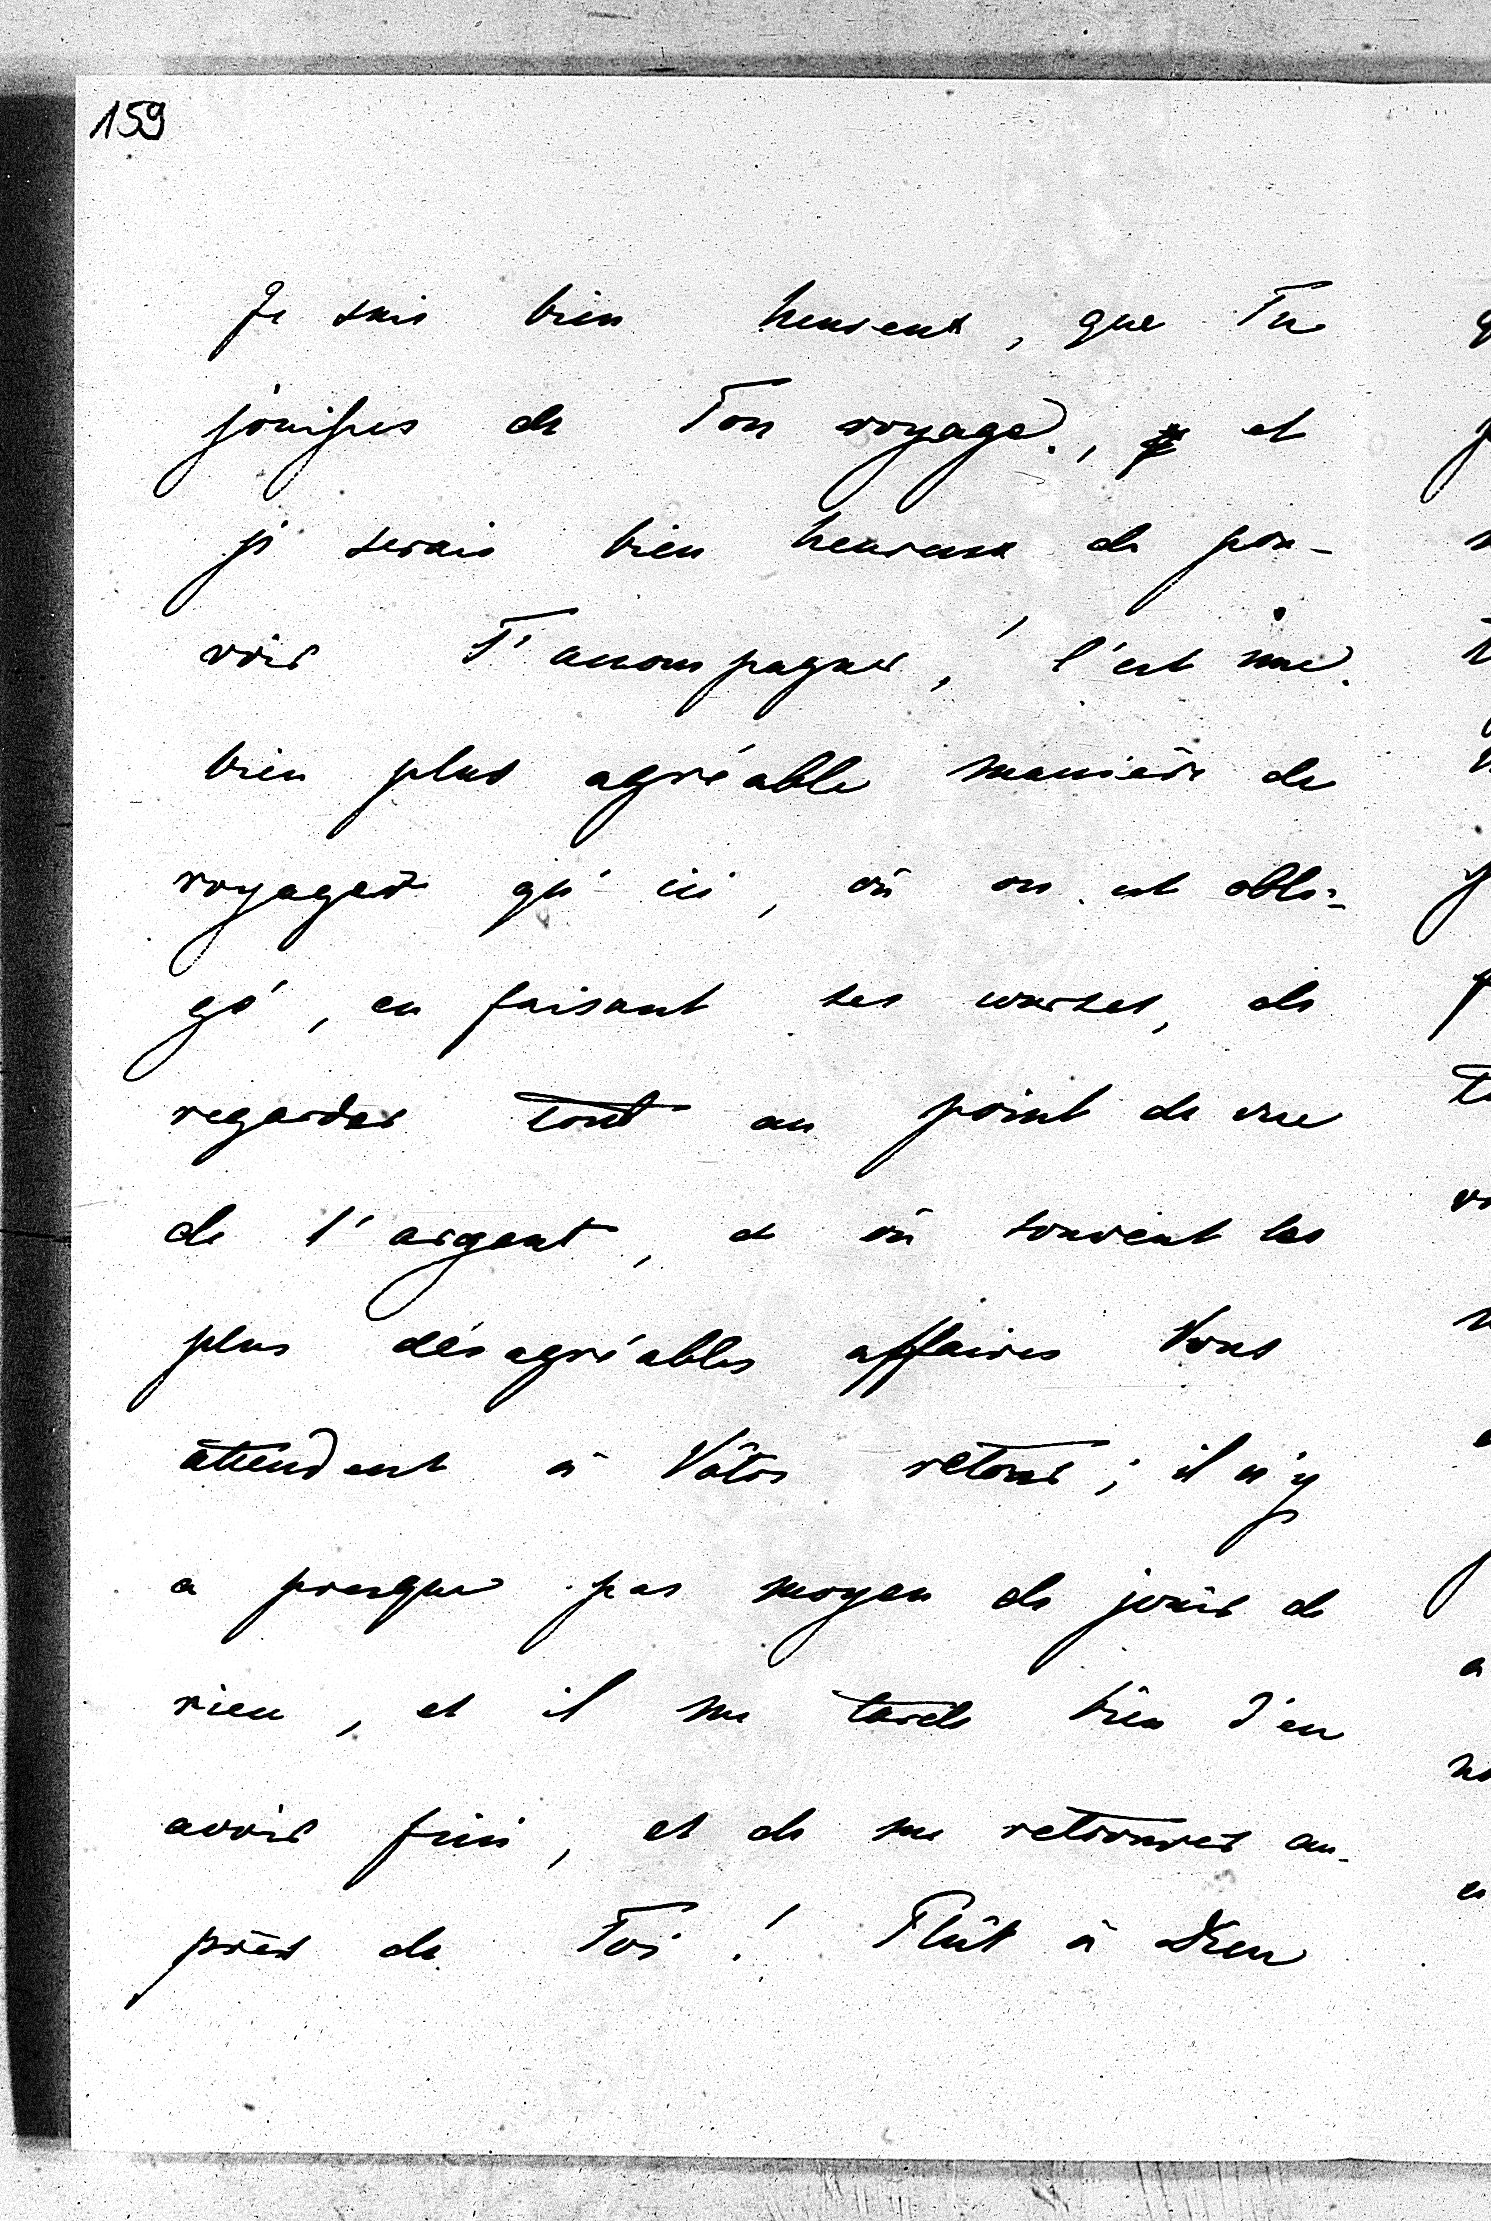 159
Je suis bien heureux, que Tu
jouisses de Ton voyage, et
je serais bien heureux de pou-
voir T'accompagner, c'est une
bien plus agréable manière de
voyager qu'ici, où on est obli-
gé, en faisant ses courses, de
regarder tout au point de vue
de l'argent, et où souvent les
plus désagréables affaires Vous
attendent à Vôtre retour; il n'y
a presque pas moyen de jouir de
rien, et il me tarde bien d'en
avoir fini, et de me retrouver au-
près de Toi! Plût à Dieu